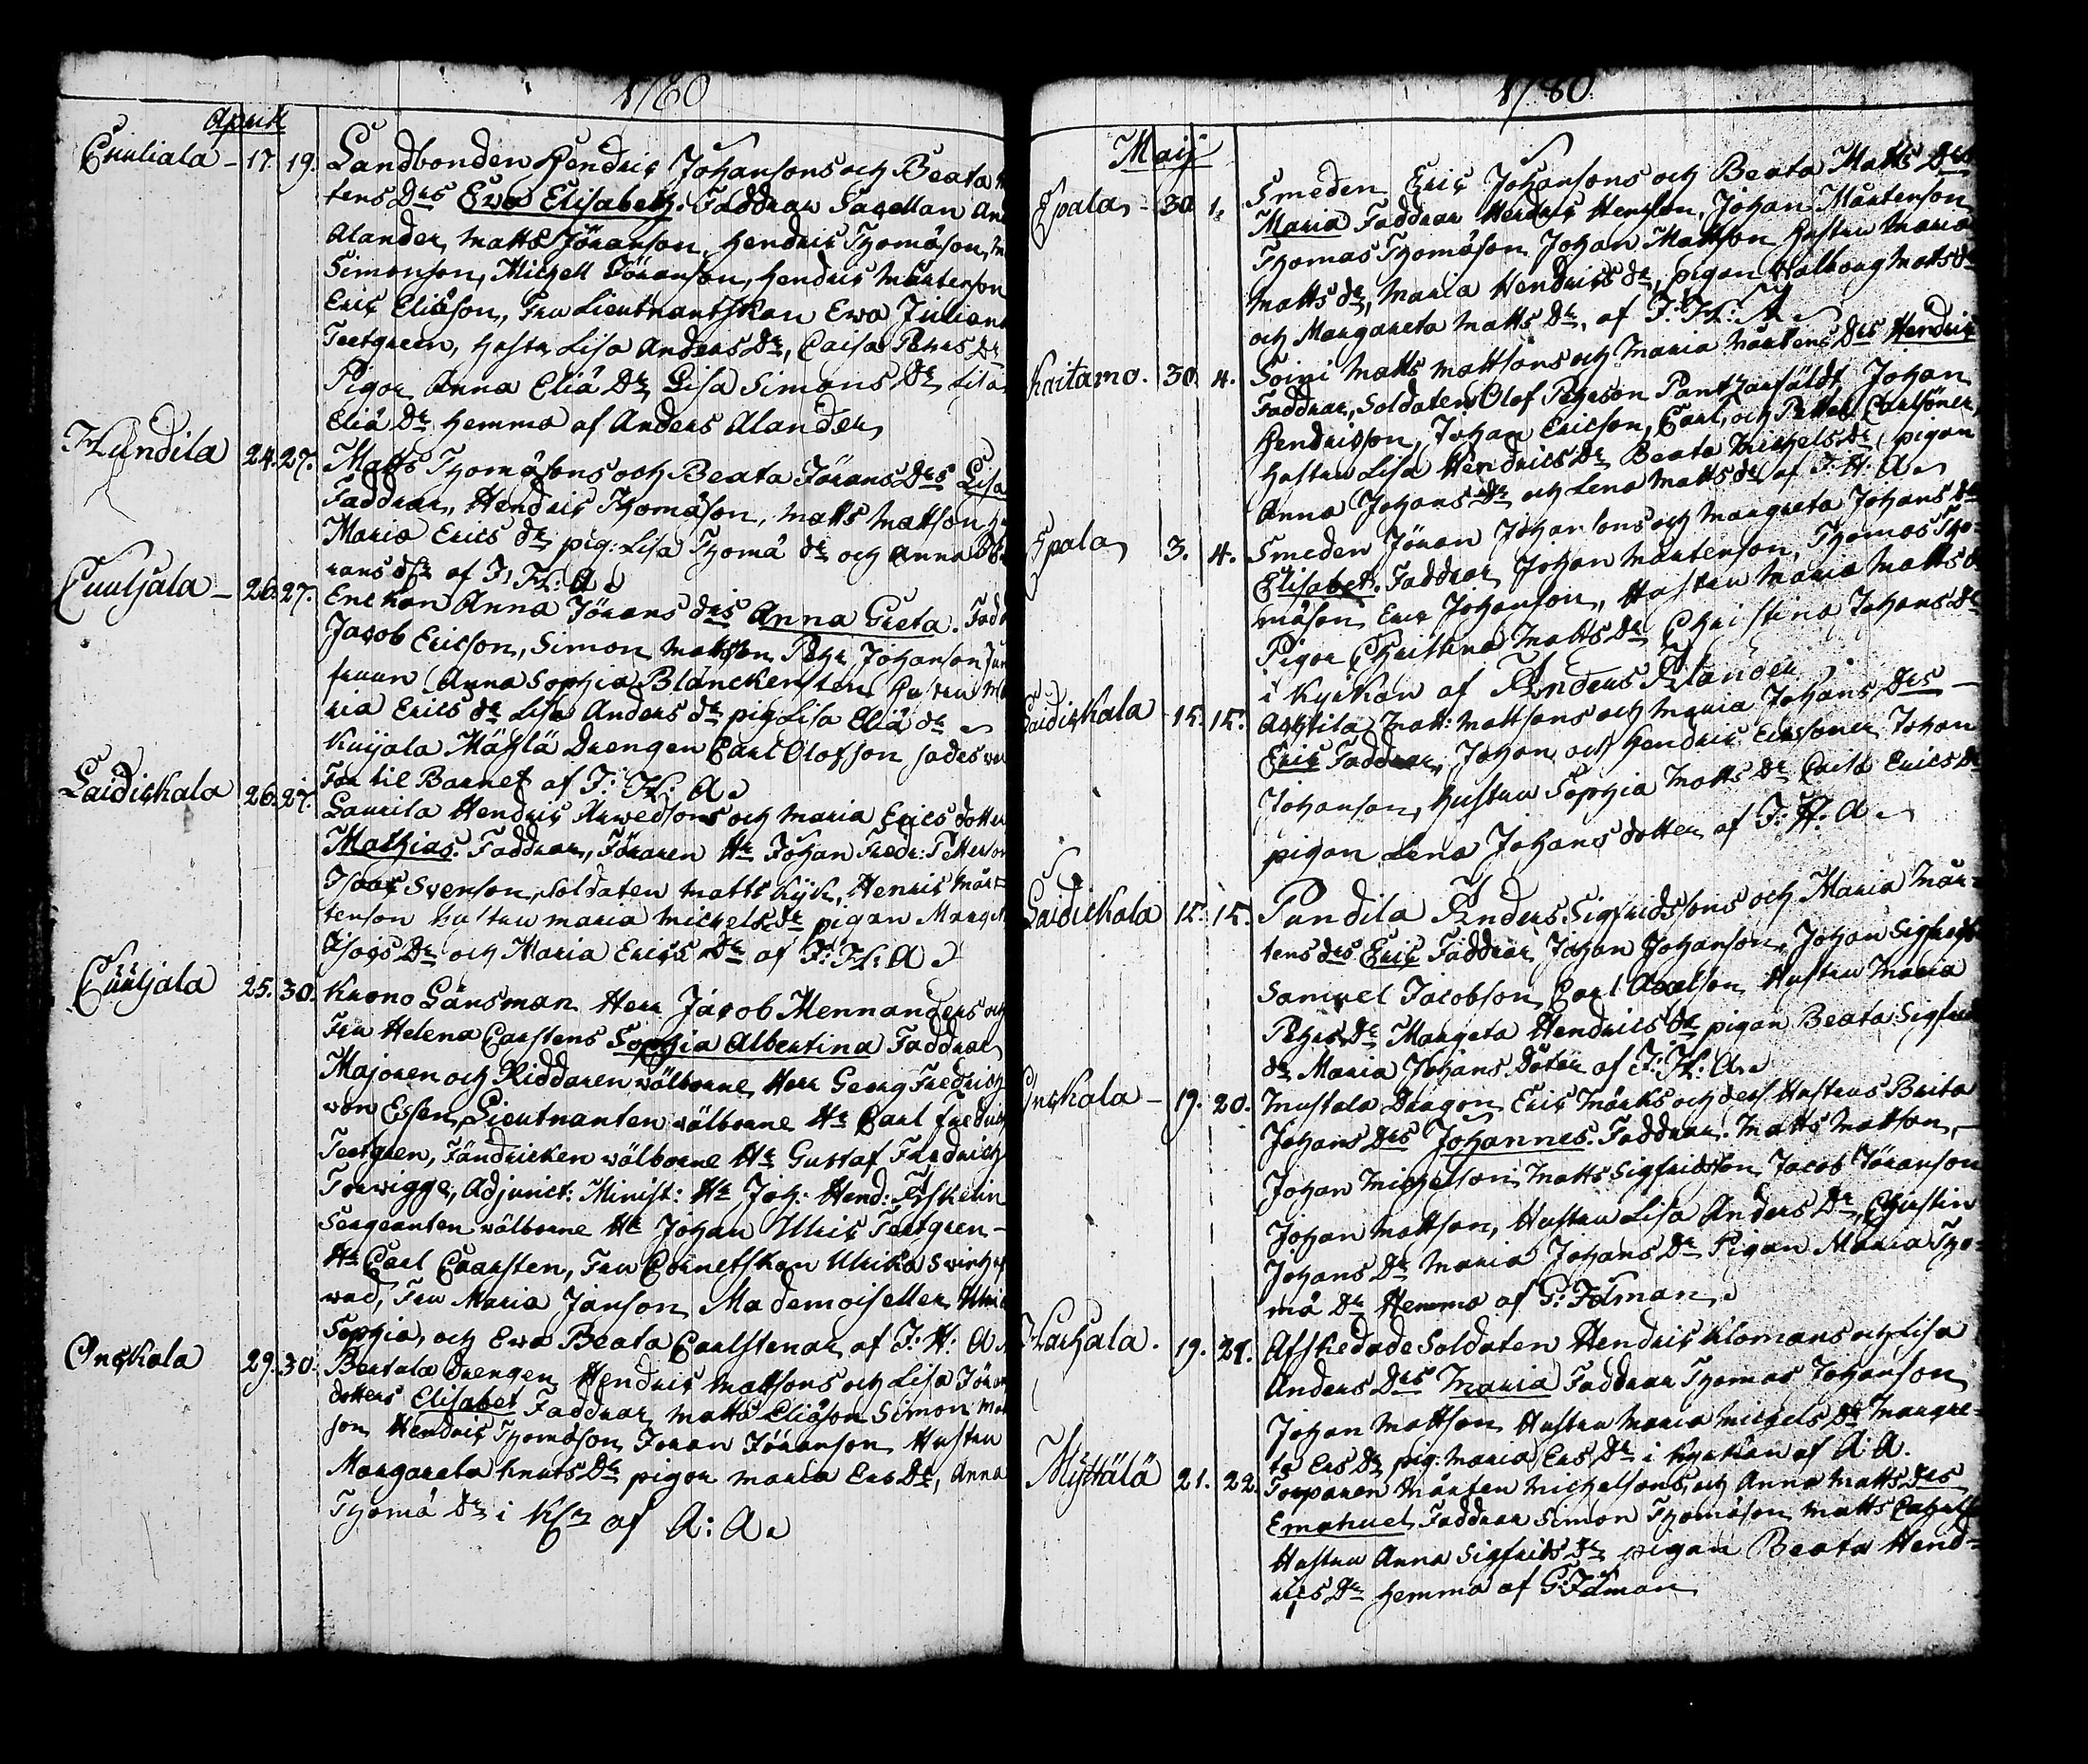 1780
April
Cuuliala - 17. 19. Landbonden Hendric Johansons och Beata
tens Drs Ewa Elisabeth. Faddrar Sacellan And
Alander, Matts Jöranson, Hendric Thomåson,
Simonson, Michell Jöranson, Hendric Mårtenson
Eric Eliåson, Fru Lieutnantskan Ewa Juliana
Teetgreen, Hustr Lisa Anders Dr, Caisa Pehrs Dr
Pigor Anna Eliå Dr Lisa Simons Dr Lisa
Eliå Dr hemma af Anders Alander
Hundila 24. 27. Matts Thomåsons och Beata Jörans Drs Lisa
Faddrar, Hendric Thomåson, Matts Mattson
Maria Erics dr pig: Lisa Thomå dr och Anna Jö
rans dr af J: H: A
Cuuljala - 26. 27. Enckan Anna Jörans drs Anna Greta. Fad
Jacob Ericson, Simon Mattson Pehr Johanson Jun
fruun Anna Sophia Blanckensten Hustru Ma
ria Erics dr Lisa Anders dr pig Lisa Eliå dr
Kuijala Mäkylä Drengen Carl Olofson sades wa
Far til Barnet af J: H: A
Laidickala 26. 27. Laurila Hendric Arwedsons och Maria Erics dotter
Mathias. Faddrar, Föraren Hr Johan Fredr: Petterson
Isaac Svenson, Soldaten Matts Kyk, Henric Mår-
tenson hustru Maria Michels dr pigan Marget
Isacs Dr och Maria Erics Dr af J: H: A
Cuuljala 25. 30. Krono Länsman Herr Jacob Mennanders och
Fru Helena Carstens Sophia Albertina Faddrar
Majoren och Riddaren wälborne Herr Georg Fredrich
von Essen, Lieutnanten wälborne Hr Carl Fredrich
Teetgren, Fändricken wälborne Hr Gustaf Fredrich
Torwigge, Adjunct: Minist: Hr Joh: Hend: Forskelin
Sergeanten wälborne Hr Johan Ulric Teetgren -
Hr Carl Carsten, Fru Cornetskan Ulrika Swinhuf
wud, Fru Maria Janson Mademoiseller Ulric
Sophia, och Ewa Beata Carlstenar af J: H: A
Onckala 29. 30. Bertala Drengen Hendric Mattsons och Lisa Jöran
dotters Elisabet Faddrar Matts Eliåson Simon Mat
son Hendric Thomåson Joran Jöranson Hustru
Margareta Knuts Dr pigor Maria Ers Dr, Anna
Thomå Dr i af A: A
1780
Maij
Epala - 30 1. Smeden Eric Johansons och Beata Matts Drs
Maria Faddrar Hendric Henrson, Johan Mårtenson
Thomas Thomåson Johan Mattson Hustru Maria
Matts dr, Maria Hendrics dr, pigan Walborg Matts dr
och Margareta Matts Dr. af J: H: A
Kaitamo. 30. 4. Soini Matts Mattsons och Maria Mårtens Drs Hendric
Faddrar, Soldaten Olof Pehrson Johan
Hendricson, Johan Ericson, Carl, och Petter Carlsöner,
Hustru Lisa Hendrics Dr Beata Michels Dr pigan
Anna Johans Dr och Lena Matts dr af J: H: A
Epala 3. 4. Smeden Jöran Johansons och Margreta Johans drs
Elisabet. Faddrar Johan Mårtenson, Thomas Tho-
måson Eric Johanson, Hustru Maria Matts dr
Pigor Christina Matts Dr Christina Johans Dr
i Kyrkan af Anders Alander
Laidickala 15. 15. Anttila Matt: Mattsons och Maria Johans Drs -
Eric Faddrar, Johan och Hendric Ericsöner Johan
Johanson, Hustru Sophia Matts Dr Carla Erics Dr
pigan Lena Johans dotter af J: H: A
Laidickala 15. 15. Pundila Anders Sigfridssons och Maria Mår-
tens drs Eric Faddrar, Johan Johanson, Johan Sigfredson
Samuel Jacobson Carl Axelson Hustru Maria
Pehrs Dr Margeta Hendrics Dr pigan Beata Sigfrids
dr Maria Johans Doter af J: H: A
Onckala - 19. 20. Mustala Dragon Eric Mörks och dess Hustrus Brita
Johans Drs Johannes. Faddrar. Matts Matson, -
Johan Michelson Matts Sigfridsson Jacob Jöranson
Johan Mattson, Hustru Lisa Anders Dr, Christin
Johans Dr Maria Johans Dr Pigan Maria Tho-
må Dr Hemma af G: Folman
Harhala. 19. 21. Afskedade Soldaten Hendric Klomans och Lisa
Anders Drs Maria Faddrar Thomas Johanson
Johan Mattson Hustru Maria Michels Dr Margre-
ta Ers Dr pig: Maria Ers Dr i Kyrkan af A: A.
Myttälä 21. 22. Torparen Mårten Michelsons, och Anna Matts drs
Emanuel Faddrar Simon Thomåson Matts
Hustru Anna Sigfrids Dr pigan Beata Hend-
rics Dr hemma af G: Folman